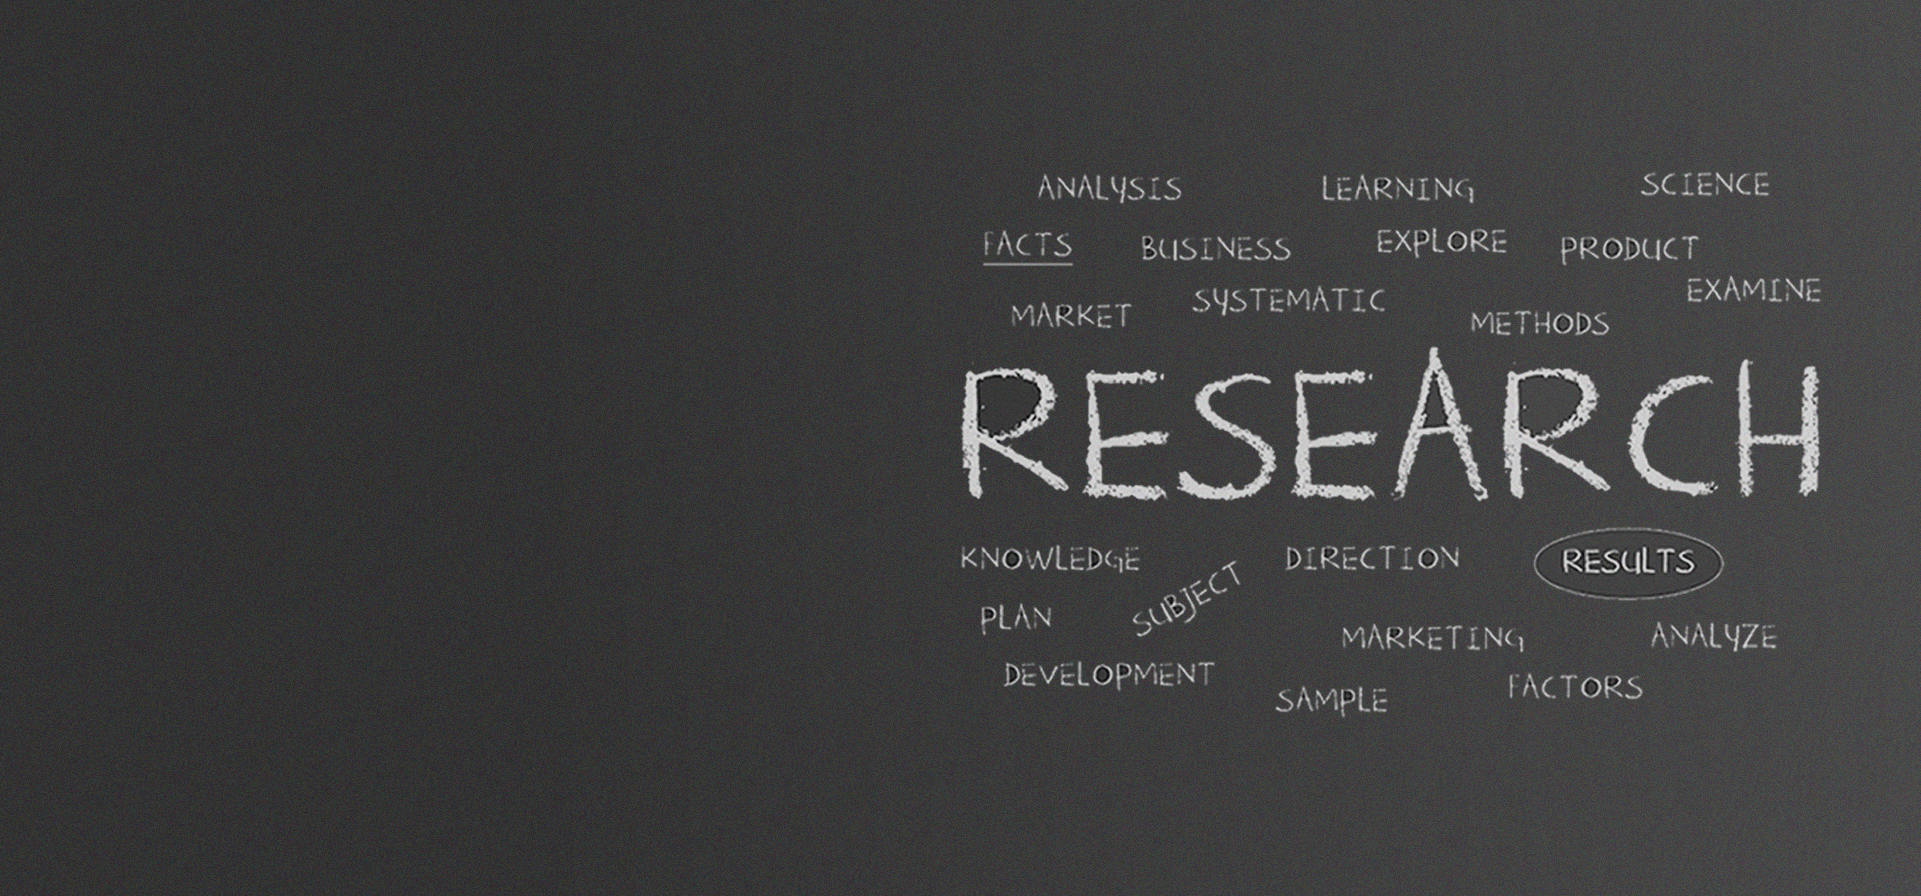 ANALYSIS LEARNING SCIENCE
FACTS BUSINESS EXPLORE PRODUCT
EXAMINE
MARKET SYSTEMATIC METHODS
RESEARCH
KNOWLEDGE DIRECTION RESULTS
SUBJECT
PLAN MARKETING ANALYZE
DEVELOPMENT SAMPLE FACTORS